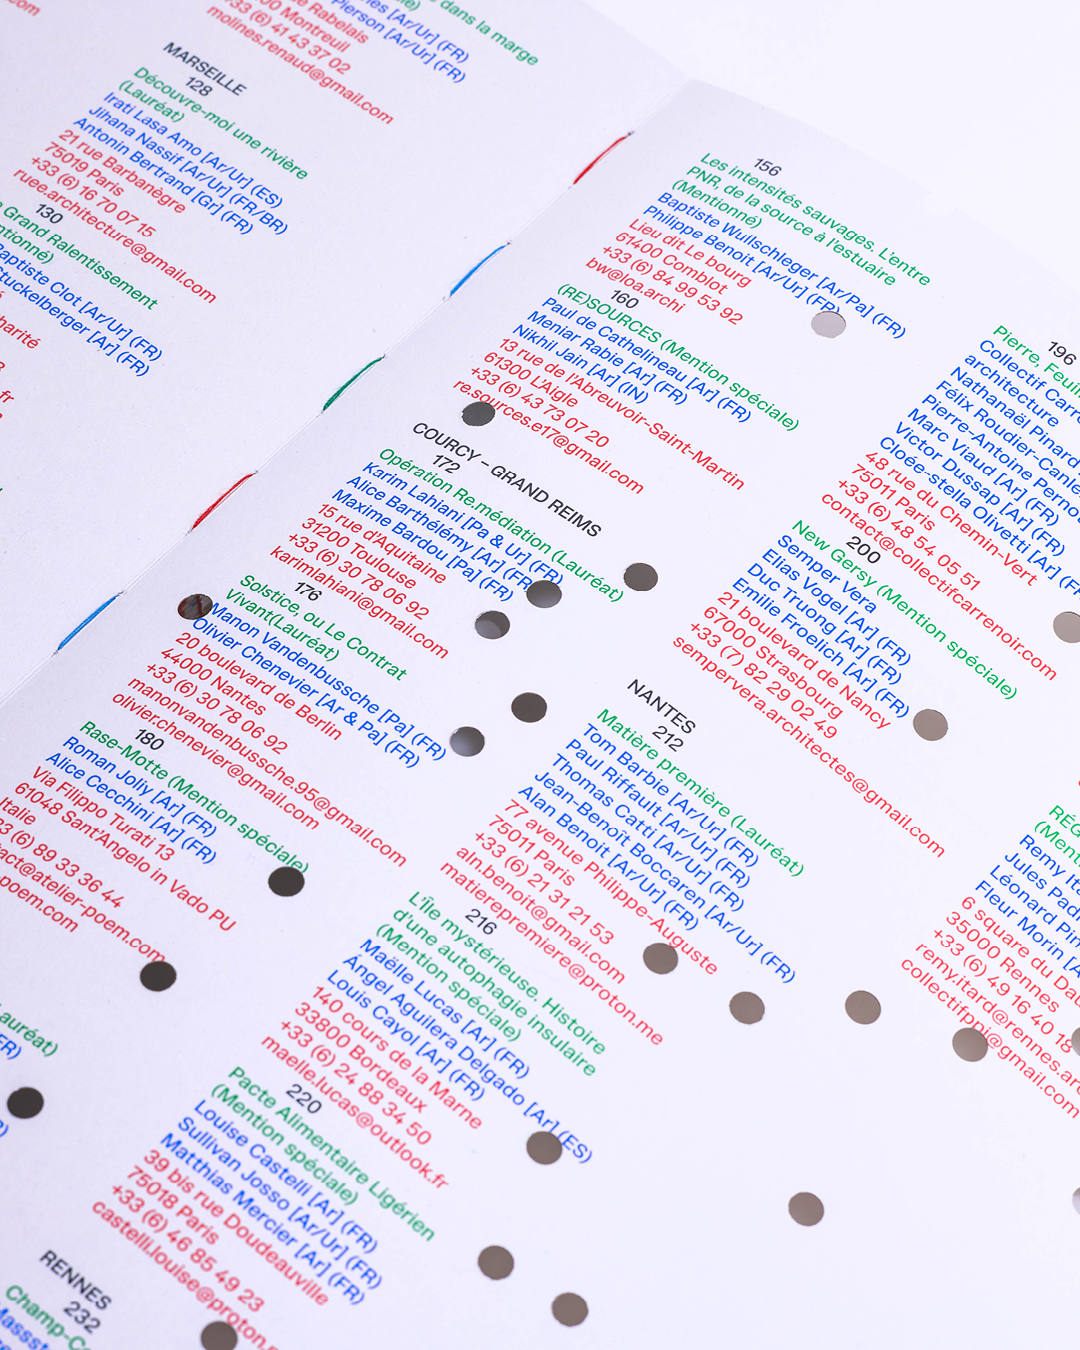 dans la marge
[Ar/Ur] (FR)
Pierson [Ar/Ur] (FR)
de Rabelais
Montreuil
(6) 41 43 37 02
molines.renaud@gmail.com
MARSEILLE
128
Découvre-moi une rivière
(Lauréat)
Irati Lasa Amo [Ar/Ur] (ES)
Jihana Nassif [Ar/Ur] (FR/BR)
Antonin Bertrand [Gr] (FR)
21 rue Barbanègre
75019 Paris
+33 (6) 16 70 07 15
ruee.architecture@gmail.com
130
Grand Ralentissement
Baptiste Clot [Ar/Ur] (FR)
Stuckelberger [Ar] (FR)
156
Les intensités sauvages. L'entre
PNR, de la source à l'estuaire
(Mentionné)
Baptiste Wullschleger [Ar/Pa] (FR)
Philippe Benoit [Ar/Ur] (FR)
Lieu dit Le bourg
61400 Comblot
+33 (6) 84 99 53 92
bw@loa.archi
160
(RE)SOURCES (Mention spéciale)
Paul de Cathelineau [Ar] (FR)
Meniar Rabie [Ar] (FR)
Nikhil Jain [Ar] (IN)
13 rue de l'Abreuvoir-Saint-Martin
61300 L'Aigle
+33 (6) 43 73 07 20
re.sources.e17@gmail.com
COURCY – GRAND REIMS
172
Opération Re.médiation (Lauréat)
Karim Lahiani [Pa & Ur] (FR)
Alice Barthélémy [Ar] (FR)
Maxime Bardou [Pa] (FR)
15 rue d'Aquitaine
31200 Toulouse
+33 (6) 30 78 06 92
karimlahiani@gmail.com
176
Solstice, ou Le Contrat
Vivant(Lauréat)
Manon Vandenbussche [Pa] (FR)
Olivier Chenevier [Ar & Pa] (FR)
20 boulevard de Berlin
44000 Nantes
+33 (6) 30 78 06 92
manonvandenbussche.95@gmail.com
olivier.chenevier@gmail.com
180
Rase-Motte (Mention spéciale)
Roman Jolly [Ar] (FR)
Alice Cecchini [Ar] (FR)
Via Filippo Turati 13
61048 Sant'Angelo in Vado PU
Italie
(6) 89 33 36 44
@atelier-poem.com
poem.com
196
Pierre,
Collectif
architecture
Nathanaël Pinard
Félix Roudier-
Pierre-Antoine
Marc Viaud [Ar] (FR)
Victor Dussap [Ar] (FR)
Cloée-stella Olivetti [Ar]
48 rue du Chemin-Vert
75011 Paris
+33 (6) 48 54 05 51
contact@collectifcarrenoir.com
200
New Gersy (Mention spéciale)
Semper Vera
Elias Vogel [Ar] (FR)
Duc Truong [Ar] (FR)
Emilie Froelich [Ar] (FR)
21 boulevard de Nancy
67000 Strasbourg
+33 (7) 82 29 02 49
sempervera.architectes@gmail.com
NANTES
212
Matière première (Lauréat)
Tom Barbie [Ar/Ur] (FR)
Paul Riffault [Ar/Ur] (FR)
Thomas Catti [Ar/Ur] (FR)
Jean-Benoît Boccaren [Ar/Ur] (FR)
Alan Benoit [Ar/Ur] (FR)
77 avenue Philippe-Auguste
75011 Paris
+33 (6) 21 31 21 53
aln.benoit@gmail.com
matierepremiere@proton.me
216
L'Île mystérieuse. Histoire
d'une autophagie insulaire
(Mention spéciale)
Maëlle Lucas [Ar] (FR)
Ángel Aguilera Delgado [Ar] (ES)
Louis Cayol [Ar] (FR)
140 cours de la Marne
33800 Bordeaux
+33 (6) 24 88 34 50
maelle.lucas@outlook.fr
220
Pacte Alimentaire Ligérien
(Mention spéciale)
Louise Castelli [Ar] (FR)
Sullivan Josso [Ar/Ur] (FR)
Matthias Mercier [Ar] (FR)
39 bis rue Doudeauville
75018 Paris
+33 (6) 46 85 49 23
castelli.louise@proton
RENNES
232
Remy
Jules
Léonard
Fleur Morin
6 square du
35000 Rennes
+33 (6) 49 16 40 18
remy.itard@rennes
collectifppi@gmail.com